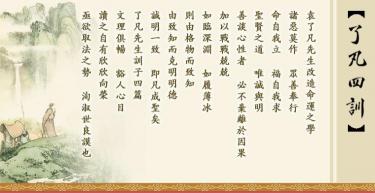 【了凡四訓】
袁了凡先生改造命運之學
諸惡莫作 眾善奉行
命自我立 福自我求
聖賢之道 唯誠與明
善談心性者 必不棄離於因果
加以戰戰兢兢
如臨深淵 如履薄冰
則由格物而致知
由致知而克明明德
誠明一致 即凡成聖矣
了凡先生訓子四篇
文理俱暢 豁人心目
讀之自有欣欣向榮
亟欲取法之勢 洵淑世良謨也